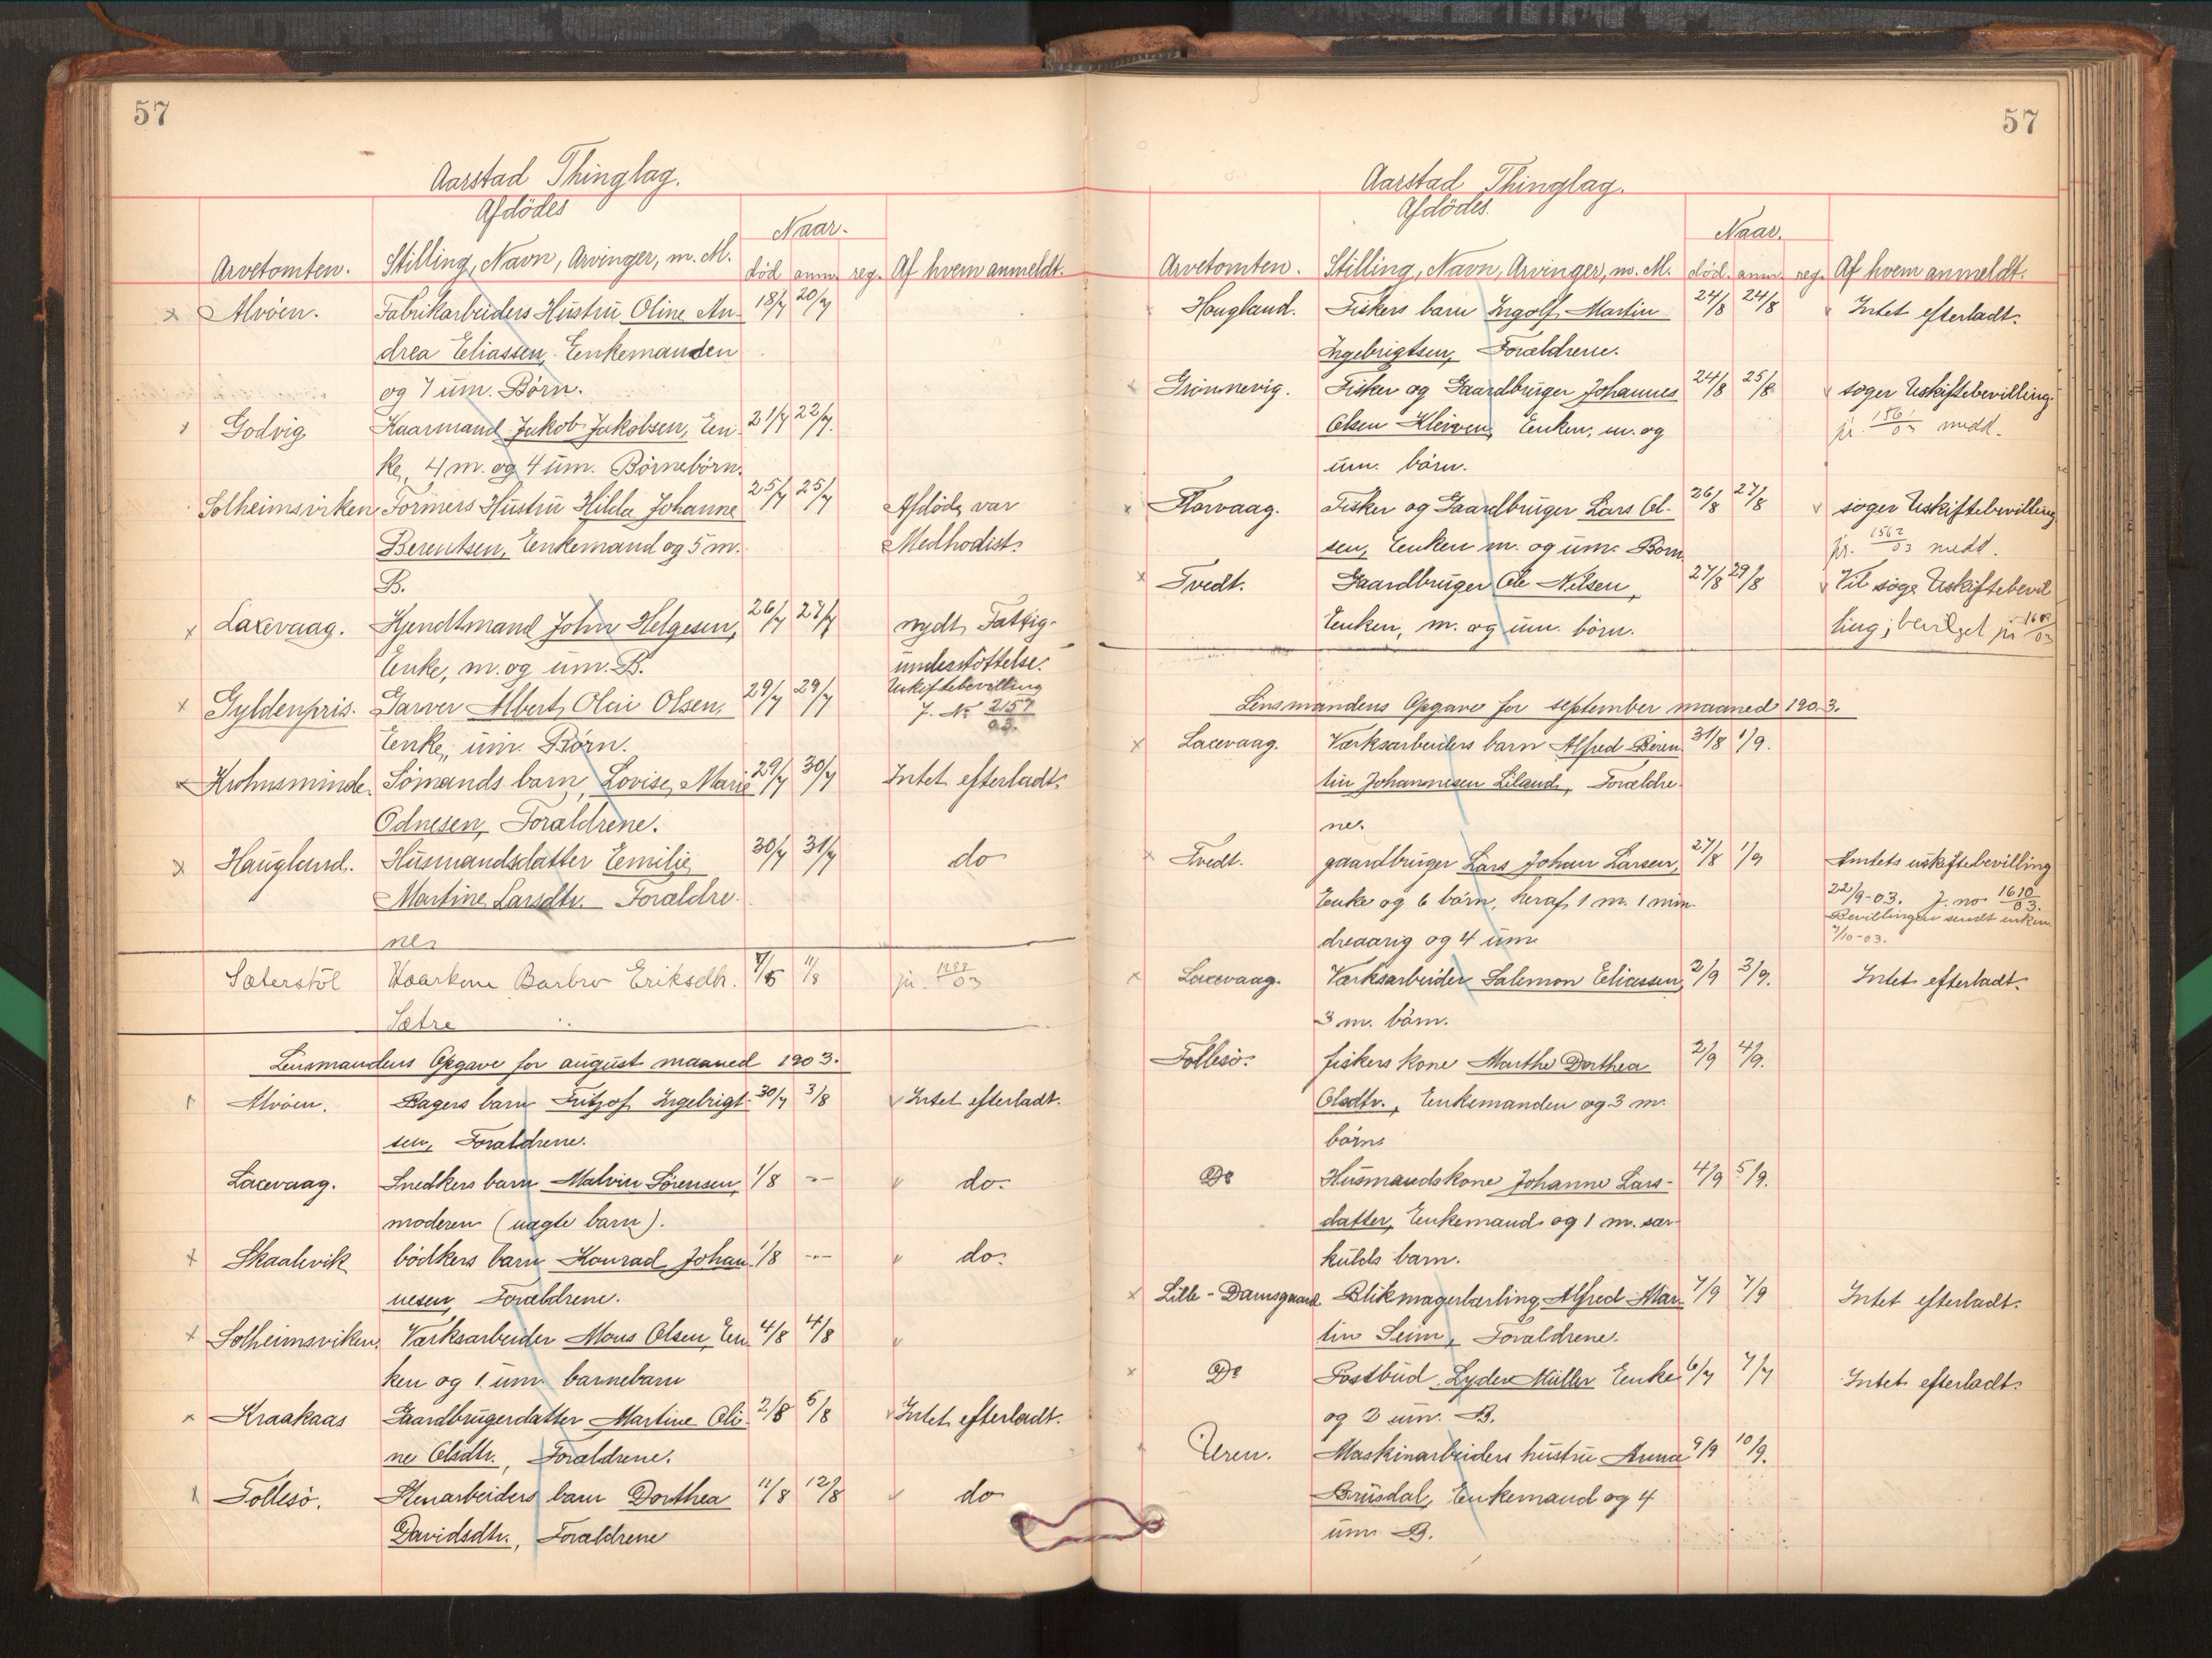 57
Aarstad Thinglag.
Afdödes
Naar.
Arvetomten. Stilling, Navn, Arvinger, m. M. död anm. reg. Af hvem anmeldt.
x Alvöen. Fabrikarbeiders Hustru Oline An- 18/7 20/7
drea Eliassen, Enkemanden
og 7 um. Börn.
Godvig Kaarmand Jakob Jakobsen, En- 21/7 22/7.
ke, 4 m. og 4 um. Börnebörn.
Solheimsviken Formers Hustru Hilda Johanne 25/7 25/7 Afdöde var
Berentsen, Enkemand og 5 m. Medhodist.
B.
x Laxevaag. Kjendtmand John Helgesen, 26/7 27/7 nydt Fattig-
Enke, m. og um. B. understöttelse.
x Gyldenpris. Garver Albert Olai Olsen, 29/7 29/7 Uskiftebevilling
J. No 2157/03.
Enke, um. Börn.
x Krohnsminde. Sömands barn, Lovise Marie 29/7 30/7 Intet efterladt.
Odnesen, Forældrene.
x Haugland. Husmandsdatter Emilie 30/7 31/7 do
Martine Larsdtr. Forældre-
ne.
Sæterstöl Kaarkone Barbro Eriksdtr. 11/8 jr.
Sætre
Lensmandens Opgave for august maaned 1903.
Alvöen. Bagers barn Fritjof Ingebrigt- 30/7 3/8 Intet efterladt.
sen, Forældrene.
Laxevaag. Snedkers barn Malvin Sörensen, 1/8 -"- do.
moderen (uægte barn).
x Skaalevik bödkers barn Konrad Johan- 1/8 -"- do.
nesen, Forældrene.
x Solheimsviken. Værksarbeider Mons Olsen, En- 4/8 4/8
ken og 1 um. barnebarn
x Kraakaas Gaardbrugerdatter Martine Oli- 2/8 5/8 Intet efterladt.
ne Olsdtr., Forældrene.
x Follesö. Stenarbeiders barn Dorthea 11/8 12/8 do
Davidsdtr., Forældrene
57
Aarstad Thinglag.
Afdödes.
Naar.
Arvetomten. Stilling, Navn, Arvinger, m. M. död. anm. reg. Af hvem anmeldt.
Hougland. Fiskers barn Ingolf Martin 24/8 24/8 Intet efterladt.
Ingebrigtsen, Forældrene.
Grönnevig. Fisker og Gaardbruger Johannes 24/8 25/8 söger Uskiftebevilling.
Olsen Kleiven, Enken, m. og jr. medd.
um. börn.
x Florvaag. Fisker og Gaardbruger Lars Ol- 26/8 27/8 söger Uskiftebevilling
sen, Enken m. og um. Börn. jr. 1562/03 medd.
x Tvedt. Gaardbruger Ole Nilsen, 27/8 29/8 Vil söge Uskiftebevil
Enken, m. og um. börn. ling; bevilget jr.
Lensmandens Opgave for september maaned 1903.
x Laxevaag. Værksarbeiders barn Alfred Beren- 31/8 1/9.
tin Johannesen Liland, Forældre-
ne.
x Tvedt. gaardbruger Lars Johan Larsen, 27/8 1/9 Amtets uskiftebevilling
Enke og 6 börn, heraf 1 m. 1 min- 22/9-03. J. no 1610/03.
dreaarig og 4 um. Bevillingen sendt enken
7/10-03.
x Laxevaag. Værksarbeider Salemon Eliassen, 2/9 3/9. Intet efterladt.
3 m. börn.
Follesö. fiskers kone Marthe Dorthea 2/9 4/9.
Olsdtr., Enkemanden og 3 m.
börn.
Do Husmandskone Johanne Lars- 4/9 5/9.
datter, Enkemand og 1 m. sær-
kulds barn.
x Lille-Damsgaard Blikmagerlærling Alfred Mar- 7/9 7/9 Intet efterladt.
tin Seim, Forældrene.
x Do Postbud Lyder Müller Enke 6/7 7/7 Intet efterladt.
og 2 um. B.
Uren. Maskinarbeiders hustru Anna 9/9 10/9.
Brüsdal, Enkemand og 4
um. B.